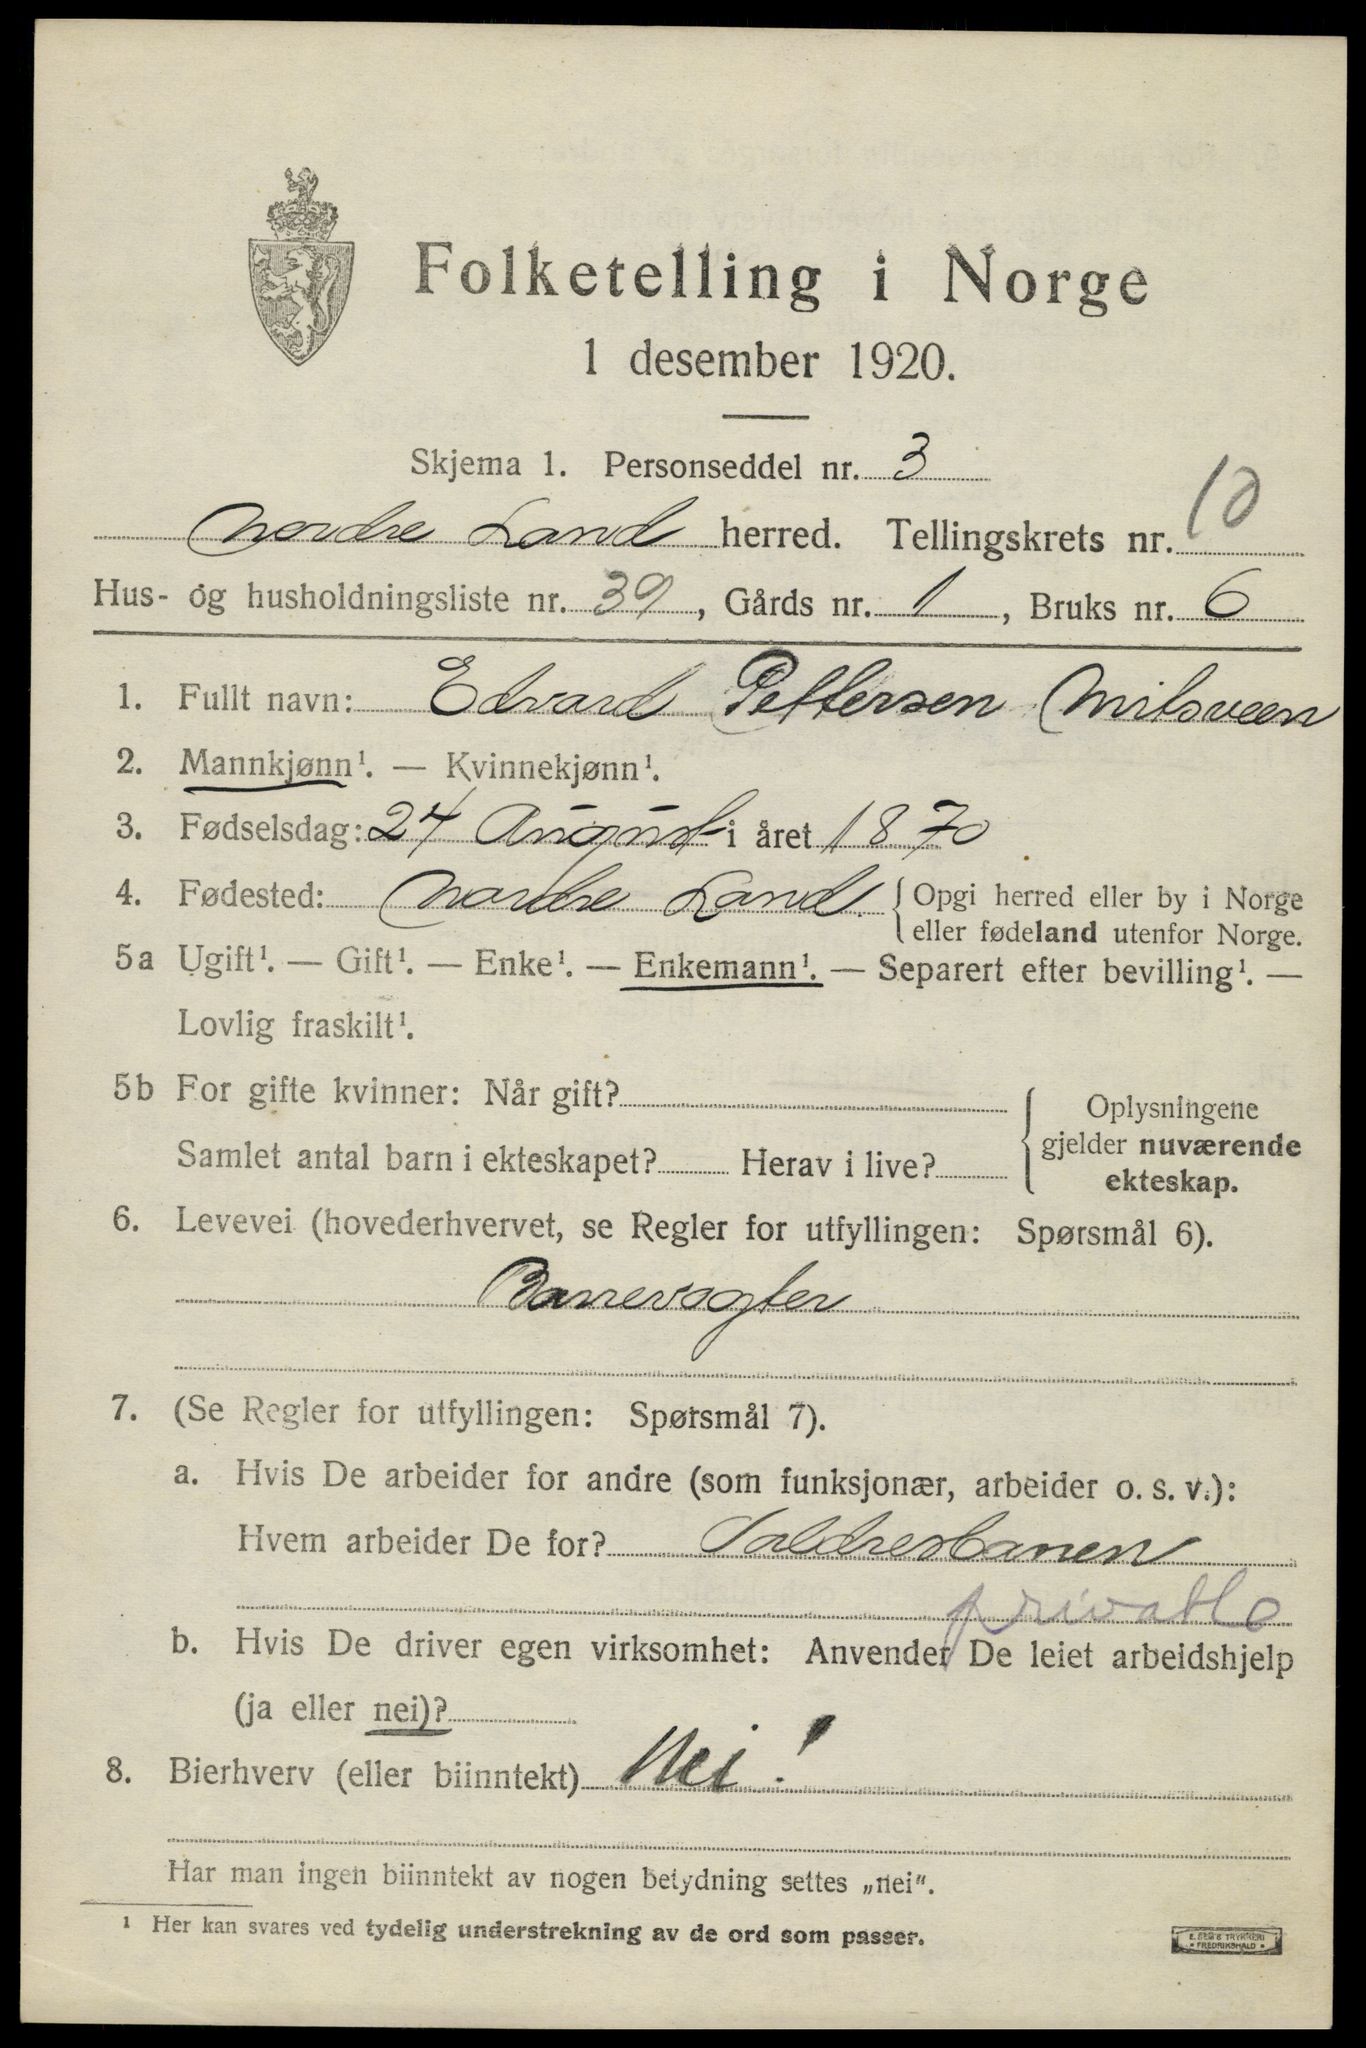 Folketelling i Norge
1 desember 1920.
Skjema 1. Personseddel nr. 3
Nordre Land herred. Tellingskrets nr. 10
Hus- og husholdningsliste nr. 39, Gårds nr. 1, Bruks nr. 6
1. Fullt navn: Edvard Pettersen Nilsveen
2. Mannkjønn¹. — Kvinnekjønn¹.
3. Fødselsdag: 24 August i året 1870
4. Fødested: Nordre Land. { Opgi herred eller by i Norge
eller fødeland utenfor Norge.
5a Ugift¹. — Gift¹. — Enke¹. — Enkemann¹. — Separert efter bevilling¹. —
Lovlig fraskilt¹.
5b For gifte kvinner: Når gift?
Samlet antal barn i ekteskapet? Herav i live?
Oplysningene
gjelder nuværende
ekteskap.
6. Levevei (hovederhvervet, se Regler for utfyllingen: Spørsmål 6).
Banevogter
7. (Se Regler for utfyllingen: Spørsmål 7).
a. Hvis De arbeider for andre (som funksjonær, arbeider o. s. v.):
Hvem arbeider De for? Valdresbanen
privat
b. Hvis De driver egen virksomhet: Anvender De leiet arbeidshjelp
(ja eller nei)?
8. Bierhverv (eller biinntekt) Nei!
Har man ingen biinntekt av nogen betydning settes „nei".
¹ Her kan svares ved tydelig understrekning av de ord som passer.
E. SEM'S TRYKKERI
• FREDRIKSHALD •